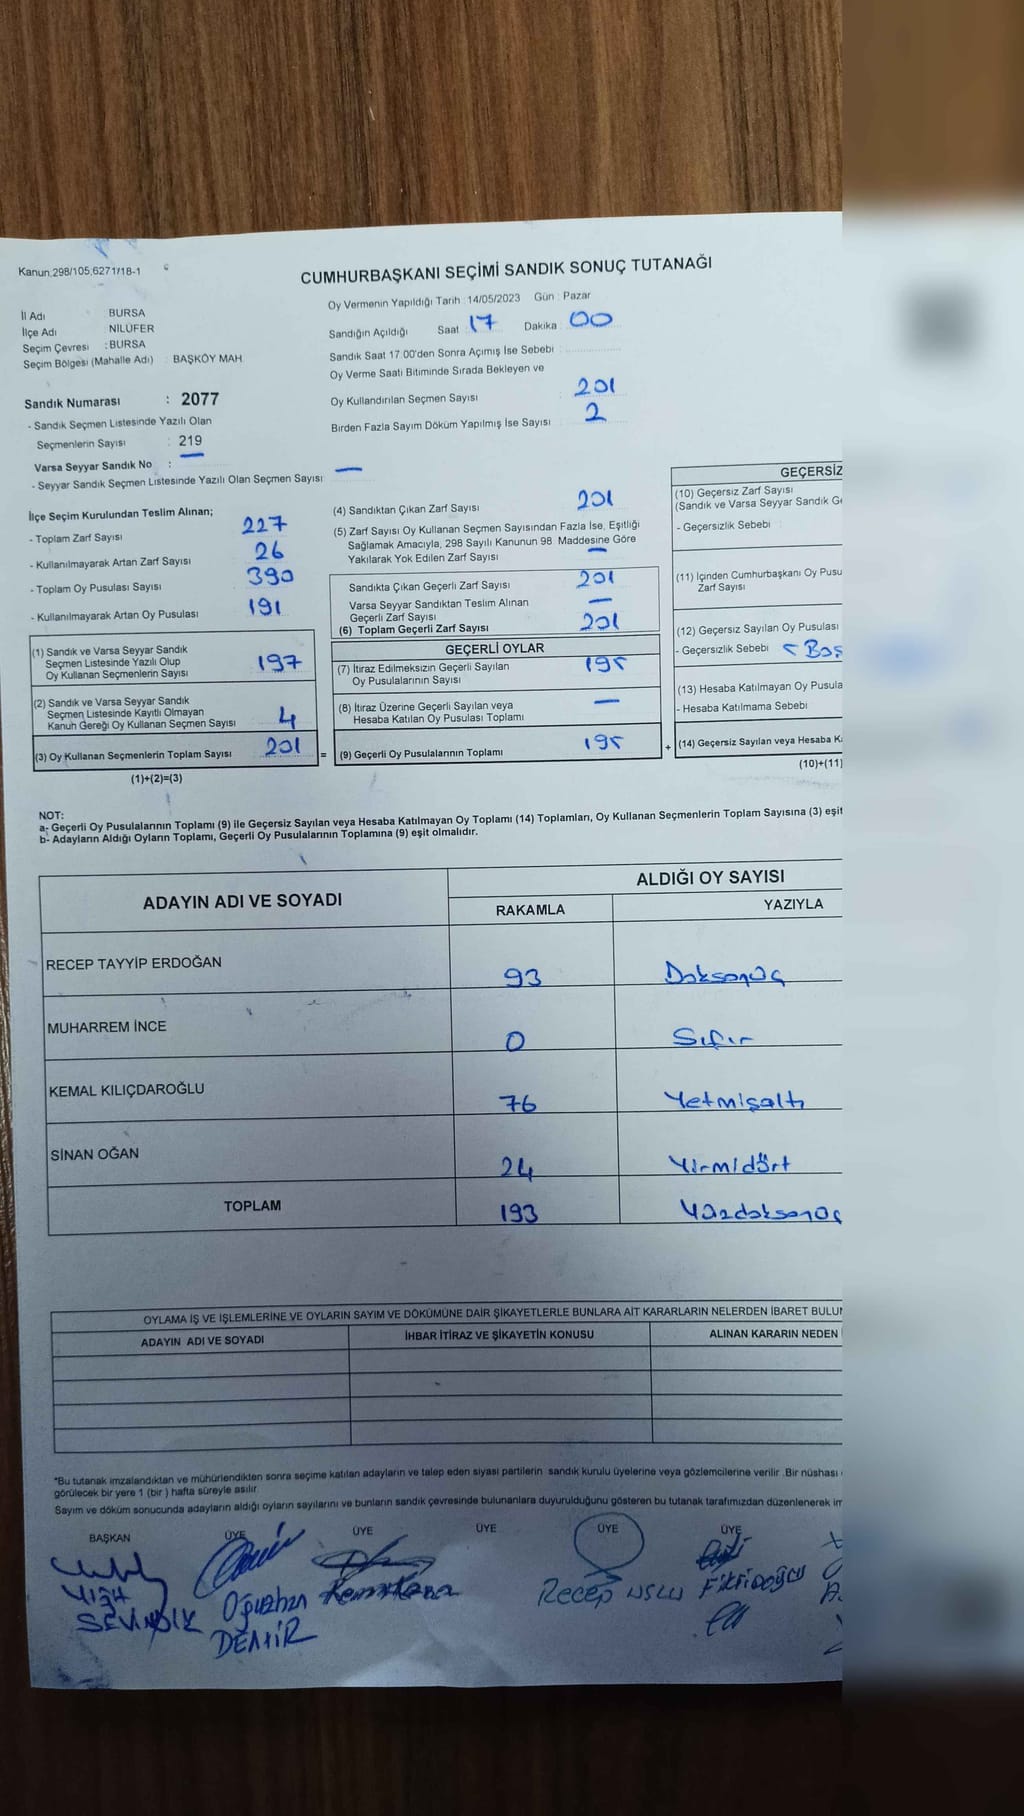 Kanun:298/105,6271/18-1
CUMHURBAŞKANI SEÇİMİ SANDIK SONUÇ TUTANAĞI
İl Adı BURSA
İlçe Adı NİLÜFER
Seçim Çevresi : BURSA
Seçim Bölgesi (Mahalle Adı) : BAŞKÖY MAH
Oy Vermenin Yapıldığı Tarih : 14/05/2023 Gün : Pazar
Sandığın Açıldığı Saat : 17 Dakika : 00
Sandık Saat 17.00'den Sonra Açımış İse Sebebi :
Oy Verme Saati Bitiminde Sırada Bekleyen ve
Oy Kullandırılan Seçmen Sayısı : 201
Birden Fazla Sayım Döküm Yapılmış İse Sayısı : 2
Sandık Numarası : 2077
- Sandık Seçmen Listesinde Yazılı Olan
Seçmenlerin Sayısı : 219
Varsa Seyyar Sandık No : —
- Seyyar Sandık Seçmen Listesinde Yazılı Olan Seçmen Sayısı : —
İlçe Seçim Kurulundan Teslim Alınan;
- Toplam Zarf Sayısı 227
- Kullanılmayarak Artan Zarf Sayısı 26
- Toplam Oy Pusulası Sayısı 390
- Kullanılmayarak Artan Oy Pusulası 191
(1) Sandık ve Varsa Seyyar Sandık
Seçmen Listesinde Yazılı Olup
Oy Kullanan Seçmenlerin Sayısı 197
(2) Sandık ve Varsa Seyyar Sandık
Seçmen Listesinde Kayıtlı Olmayan
Kanun Gereği Oy Kullanan Seçmen Sayısı 4
(3) Oy Kullanan Seçmenlerin Toplam Sayısı 201 =
(1)+(2)=(3)
(4) Sandıktan Çıkan Zarf Sayısı 201
(5) Zarf Sayısı Oy Kullanan Seçmen Sayısından Fazla İse, Eşitliği
Sağlamak Amacıyla, 298 Sayılı Kanunun 98 Maddesine Göre
Yakılarak Yok Edilen Zarf Sayısı —
Sandıkta Çıkan Geçerli Zarf Sayısı 201
Varsa Seyyar Sandıktan Teslim Alınan
Geçerli Zarf Sayısı —
(6) Toplam Geçerli Zarf Sayısı 201
GEÇERLİ OYLAR
(7) İtiraz Edilmeksizin Geçerli Sayılan
Oy Pusulalarının Sayısı 195
(8) İtiraz Üzerine Geçerli Sayılan veya
Hesaba Katılan Oy Pusulası Toplamı —
(9) Geçerli Oy Pusulalarının Toplamı 195 +
GEÇERSİZ
(10) Geçersiz Zarf Sayısı
(Sandık ve Varsa Seyyar Sandık Ge
- Geçersizlik Sebebi
(11) İçinden Cumhurbaşkanı Oy Pusu
Zarf Sayısı
(12) Geçersiz Sayılan Oy Pusulası
- Geçersizlik Sebebi
(13) Hesaba Katılmayan Oy Pusula
- Hesaba Katılmama Sebebi
(14) Geçersiz Sayılan veya Hesaba K
(10)+(11)
NOT:
a- Geçerli Oy Pusulalarının Toplamı (9) ile Geçersiz Sayılan veya Hesaba Katılmayan Oy Toplamı (14) Toplamları, Oy Kullanan Seçmenlerin Toplam Sayısına (3) eşit
b- Adayların Aldığı Oyların Toplamı, Geçerli Oy Pusulalarının Toplamına (9) eşit olmalıdır.
ADAYIN ADI VE SOYADI ALDIĞI OY SAYISI
RAKAMLA YAZIYLA
RECEP TAYYİP ERDOĞAN 93 Doksanüç
MUHARREM İNCE 0 Sıfır
KEMAL KILIÇDAROĞLU 76 Yetmişaltı
SİNAN OĞAN 24 Yirmidört
TOPLAM 193 Yüzdoksanüç
OYLAMA İŞ VE İŞLEMLERİNE VE OYLARIN SAYIM VE DÖKÜMÜNE DAİR ŞİKAYETLERLE BUNLARA AİT KARARLARIN NELERDEN İBARET BULUN
ADAYIN ADI VE SOYADI İHBAR İTİRAZ VE ŞİKAYETİN KONUSU ALINAN KARARIN NEDEN
*Bu tutanak imzalandıktan ve mühürlendikten sonra seçime katılan adayların ve talep eden siyasi partilerin sandık kurulu üyelerine veya gözlemcilerine verilir. Bir nüshası
görülecek bir yere 1 (bir) hafta süreyle asılır.
Sayım ve döküm sonucunda adayların aldığı oyların sayılarını ve bunların sandık çevresinde bulunanlara duyurulduğunu gösteren bu tutanak tarafımızdan düzenlenerek im
BAŞKAN ÜYE ÜYE ÜYE ÜYE ÜYE
Yiğit
SEVİNDİK
Oğuzhan
DEMİR
Recep USLU